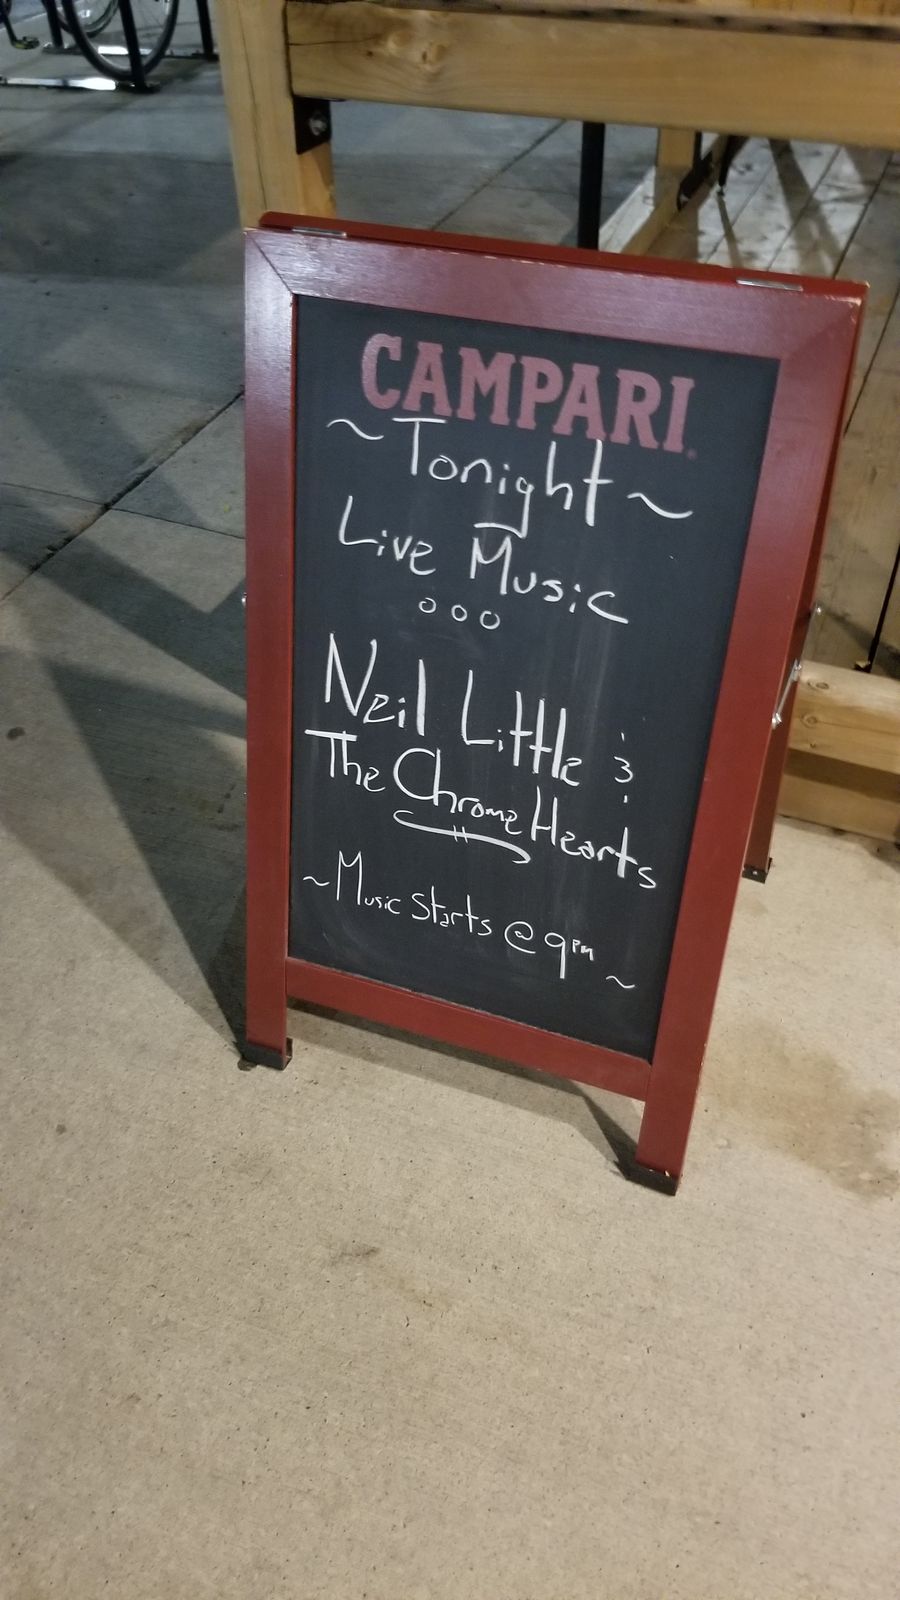 CAMPARI
~Tonight~
Live Music
ooo
Neil Little &
The Chrome Hearts
~Music Starts @ 9pm~